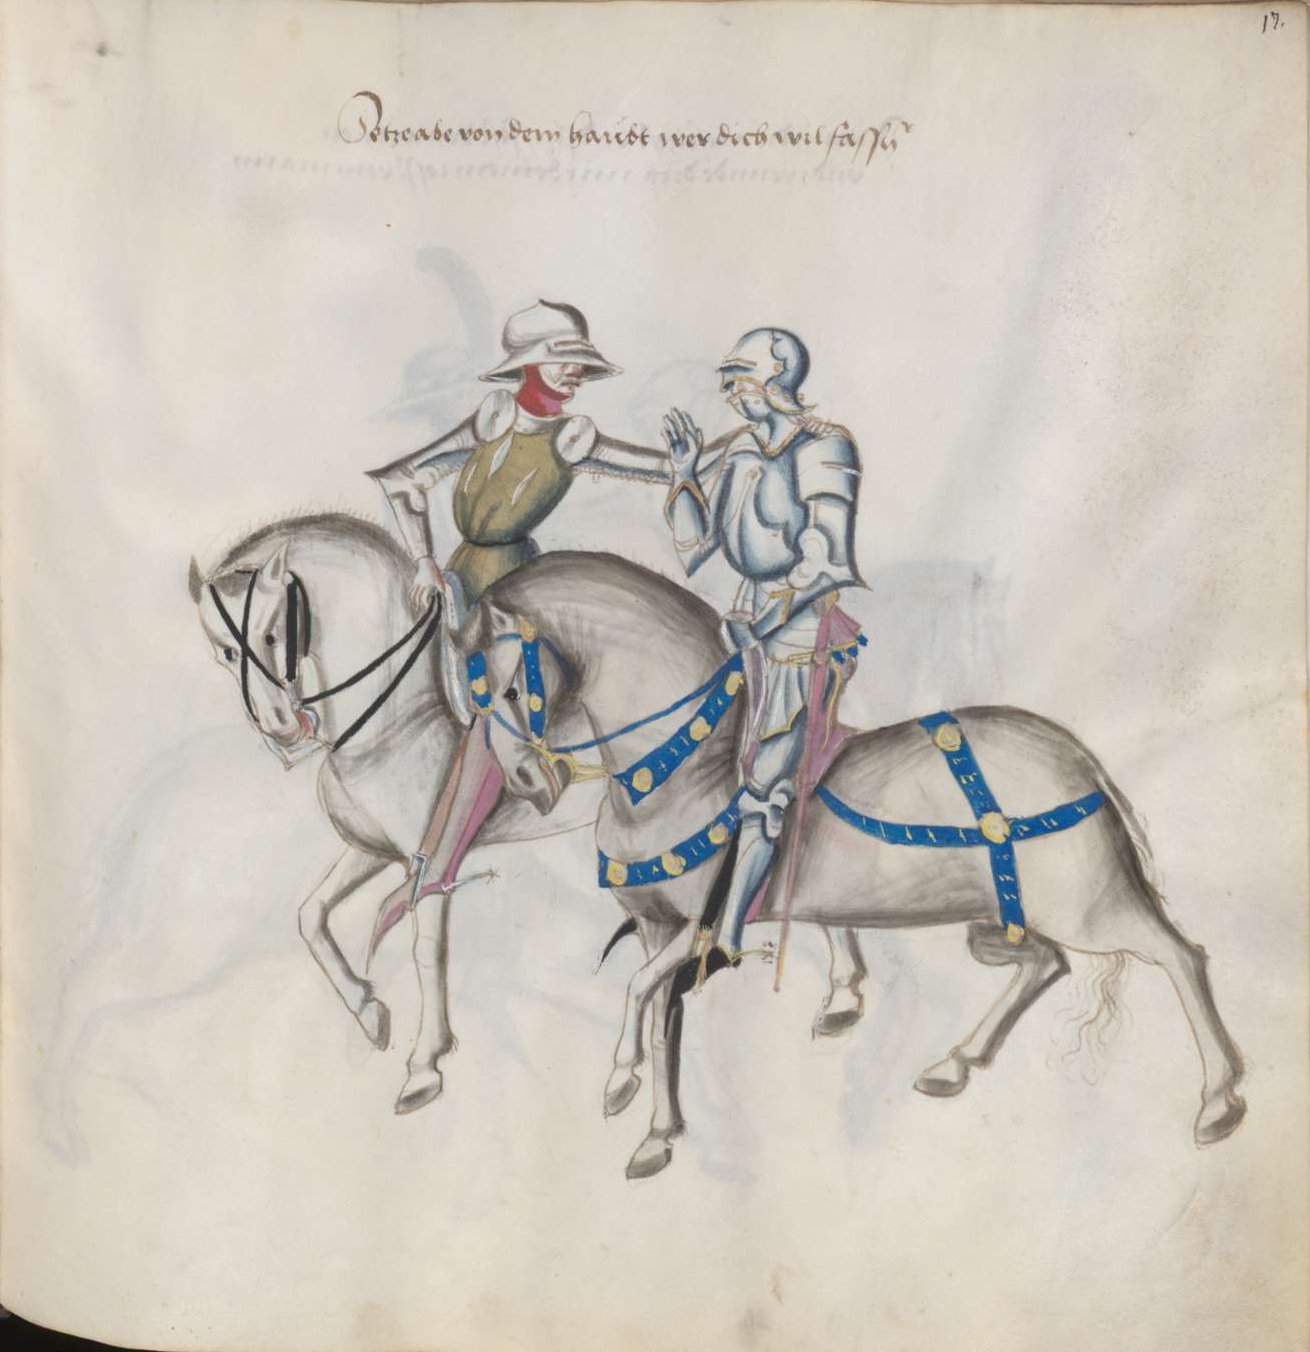 17.
Setze abe von dem haubt wer dich wil fassen